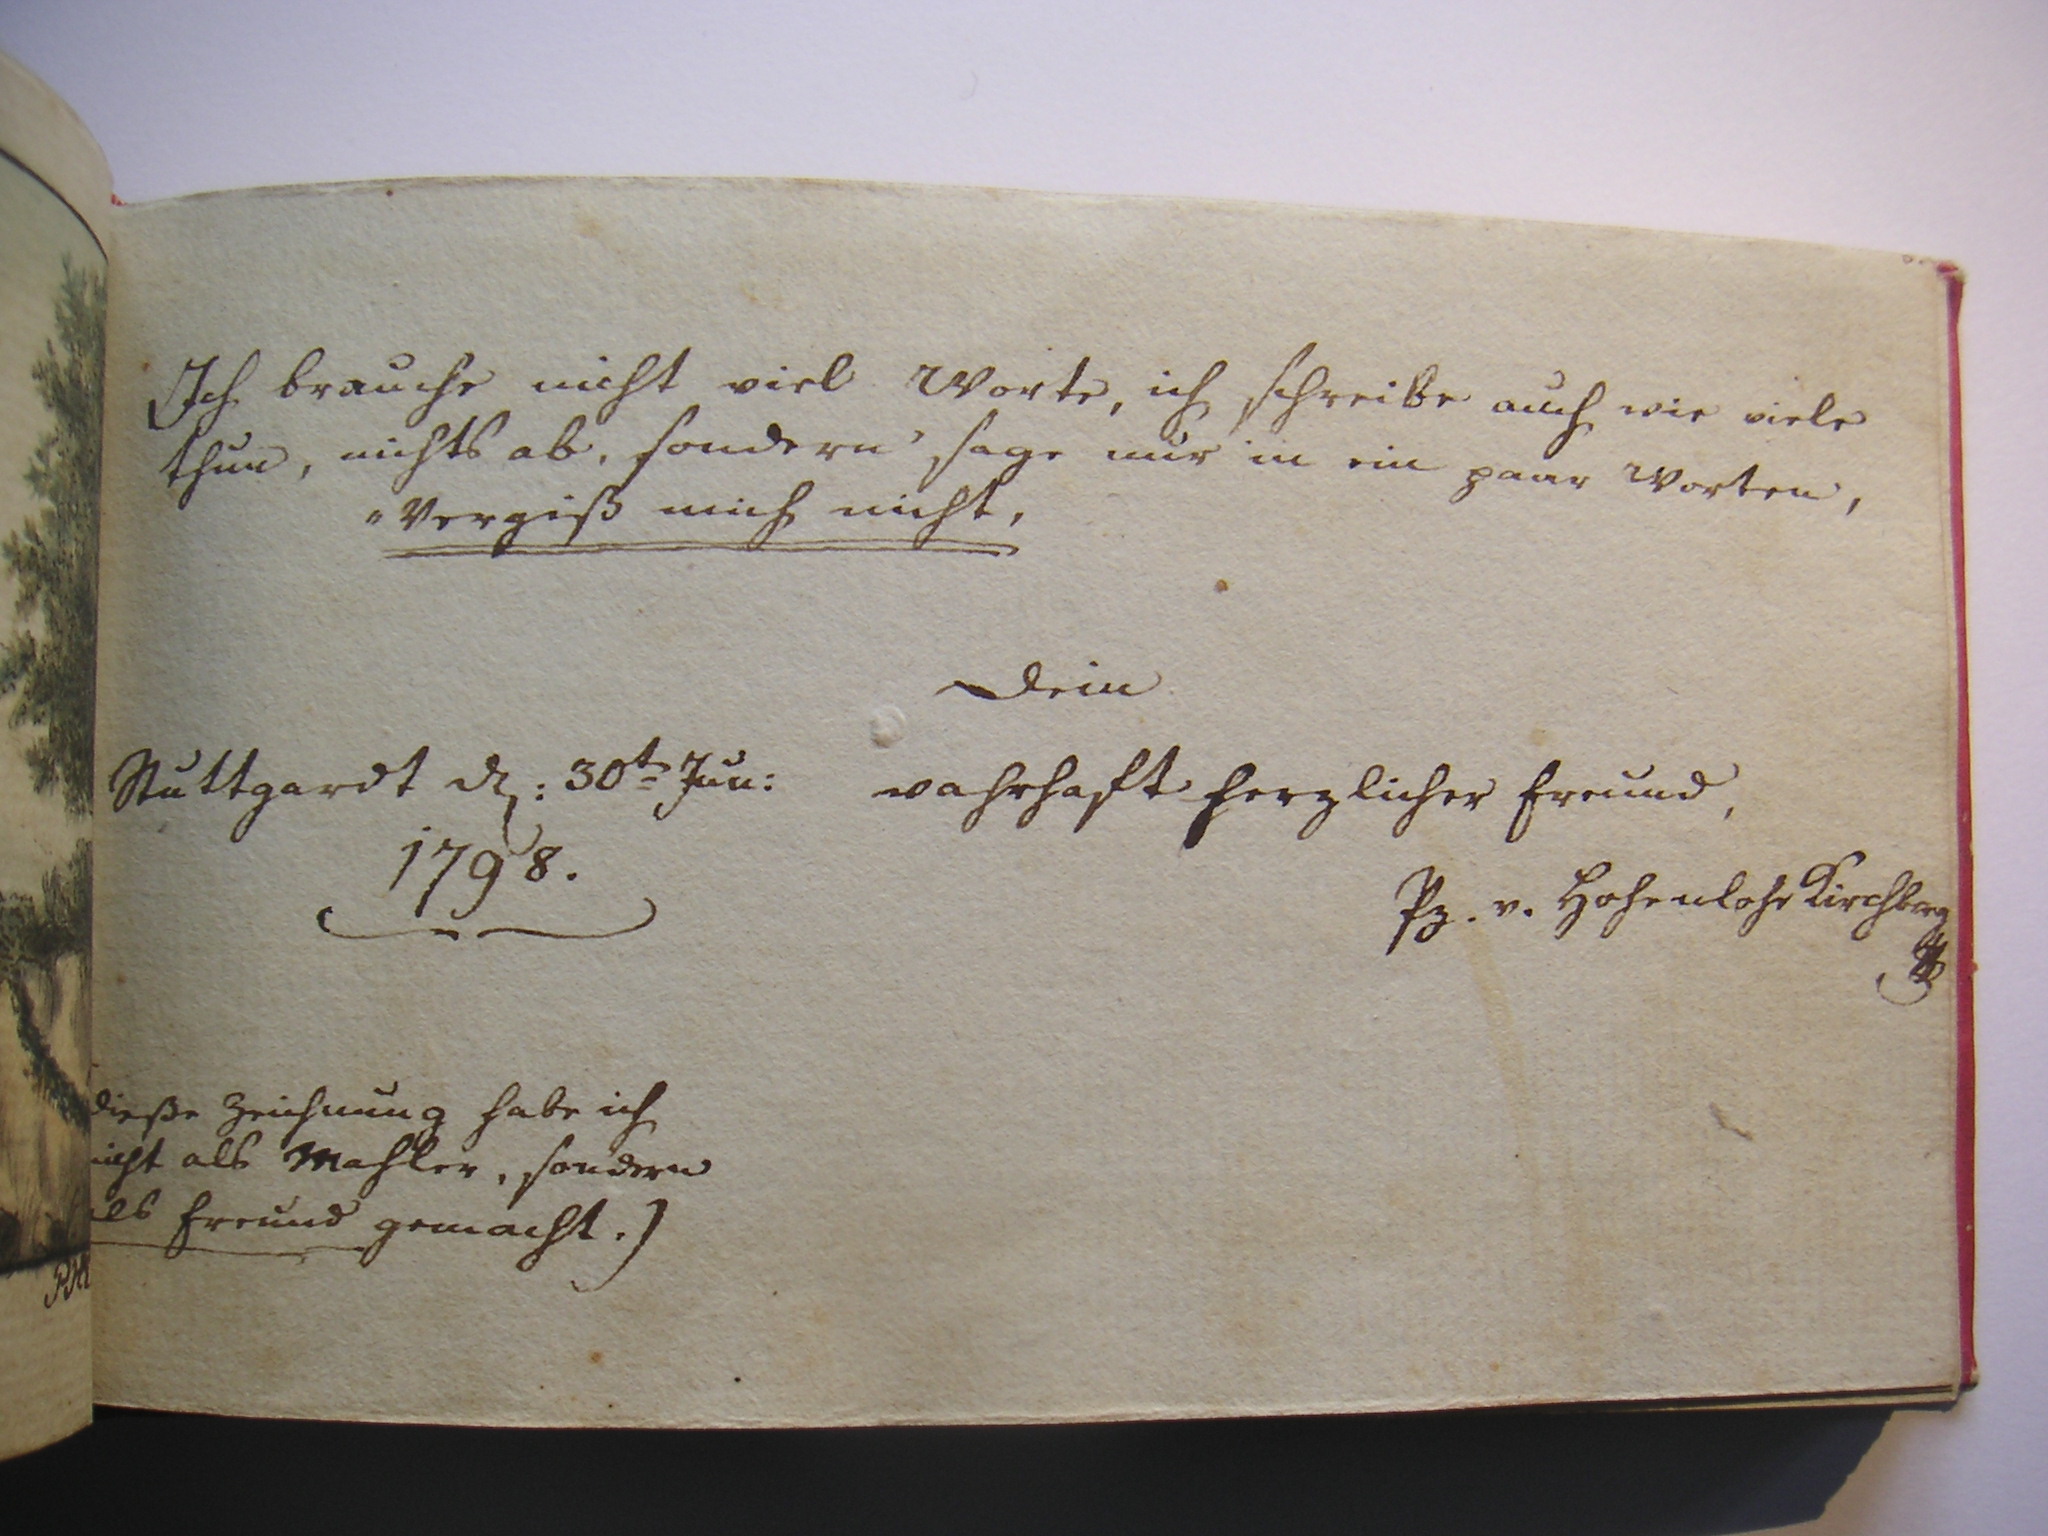 Ich brauche nicht viel Worte, ich schreibe auch wie viele
thun, nichts ab, sondern sage nur in ein paar Worten,
"Vergiß mich nicht,
Dein
Stuttgardt d: 30t Jun: wahrhaft herzlicher Freund,
1798.
Pz. v. Hohenlohe Kirchberg
dieße Zeichnung habe ich
nicht als Mahler, sondern
als Freund gemacht.)